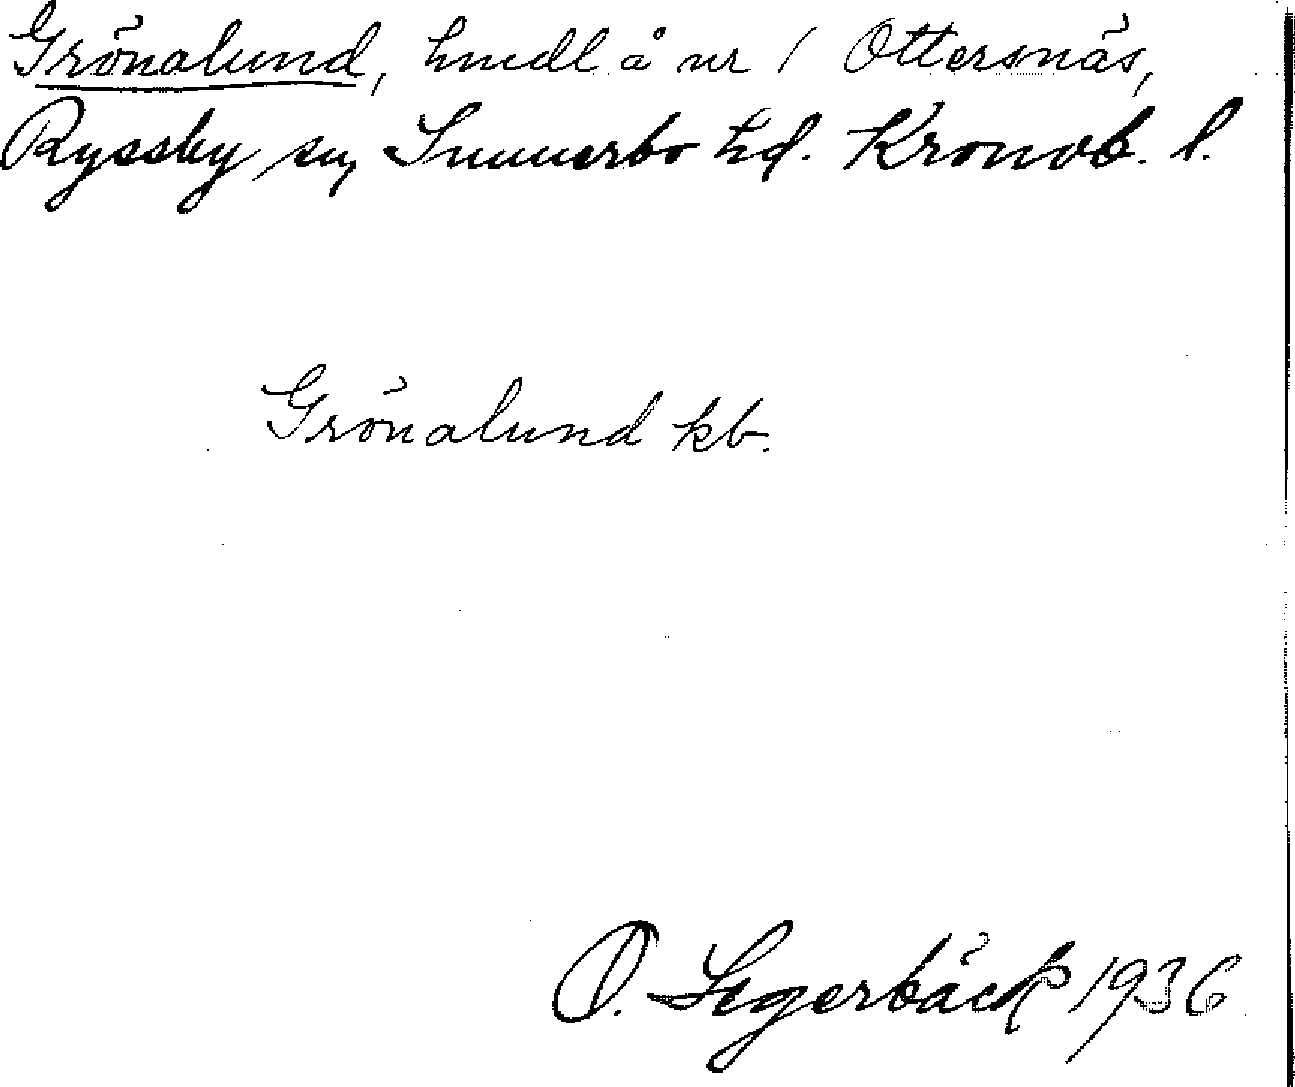 Grönalund, hmdl å nr 1 Ottersnäs,
Ryssby sn, Sunnerbo hd. Kronob. l.
Grönalund kb.
O. Segerbäck 1936